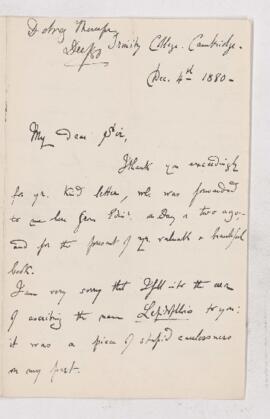 Trinity College. Cambridge.
Dec. 4th 1880-
My dear Sir,
Thank you exceedingly
for yr. kind letter, wh. was forwarded
to me here from Edinr. a day or two ago,
and for the present of yr. valuable & beautiful
book.
I am very sorry that I fell into the error
of ascribing the name to you:
it was a piece of stupid carelessness
on my part.